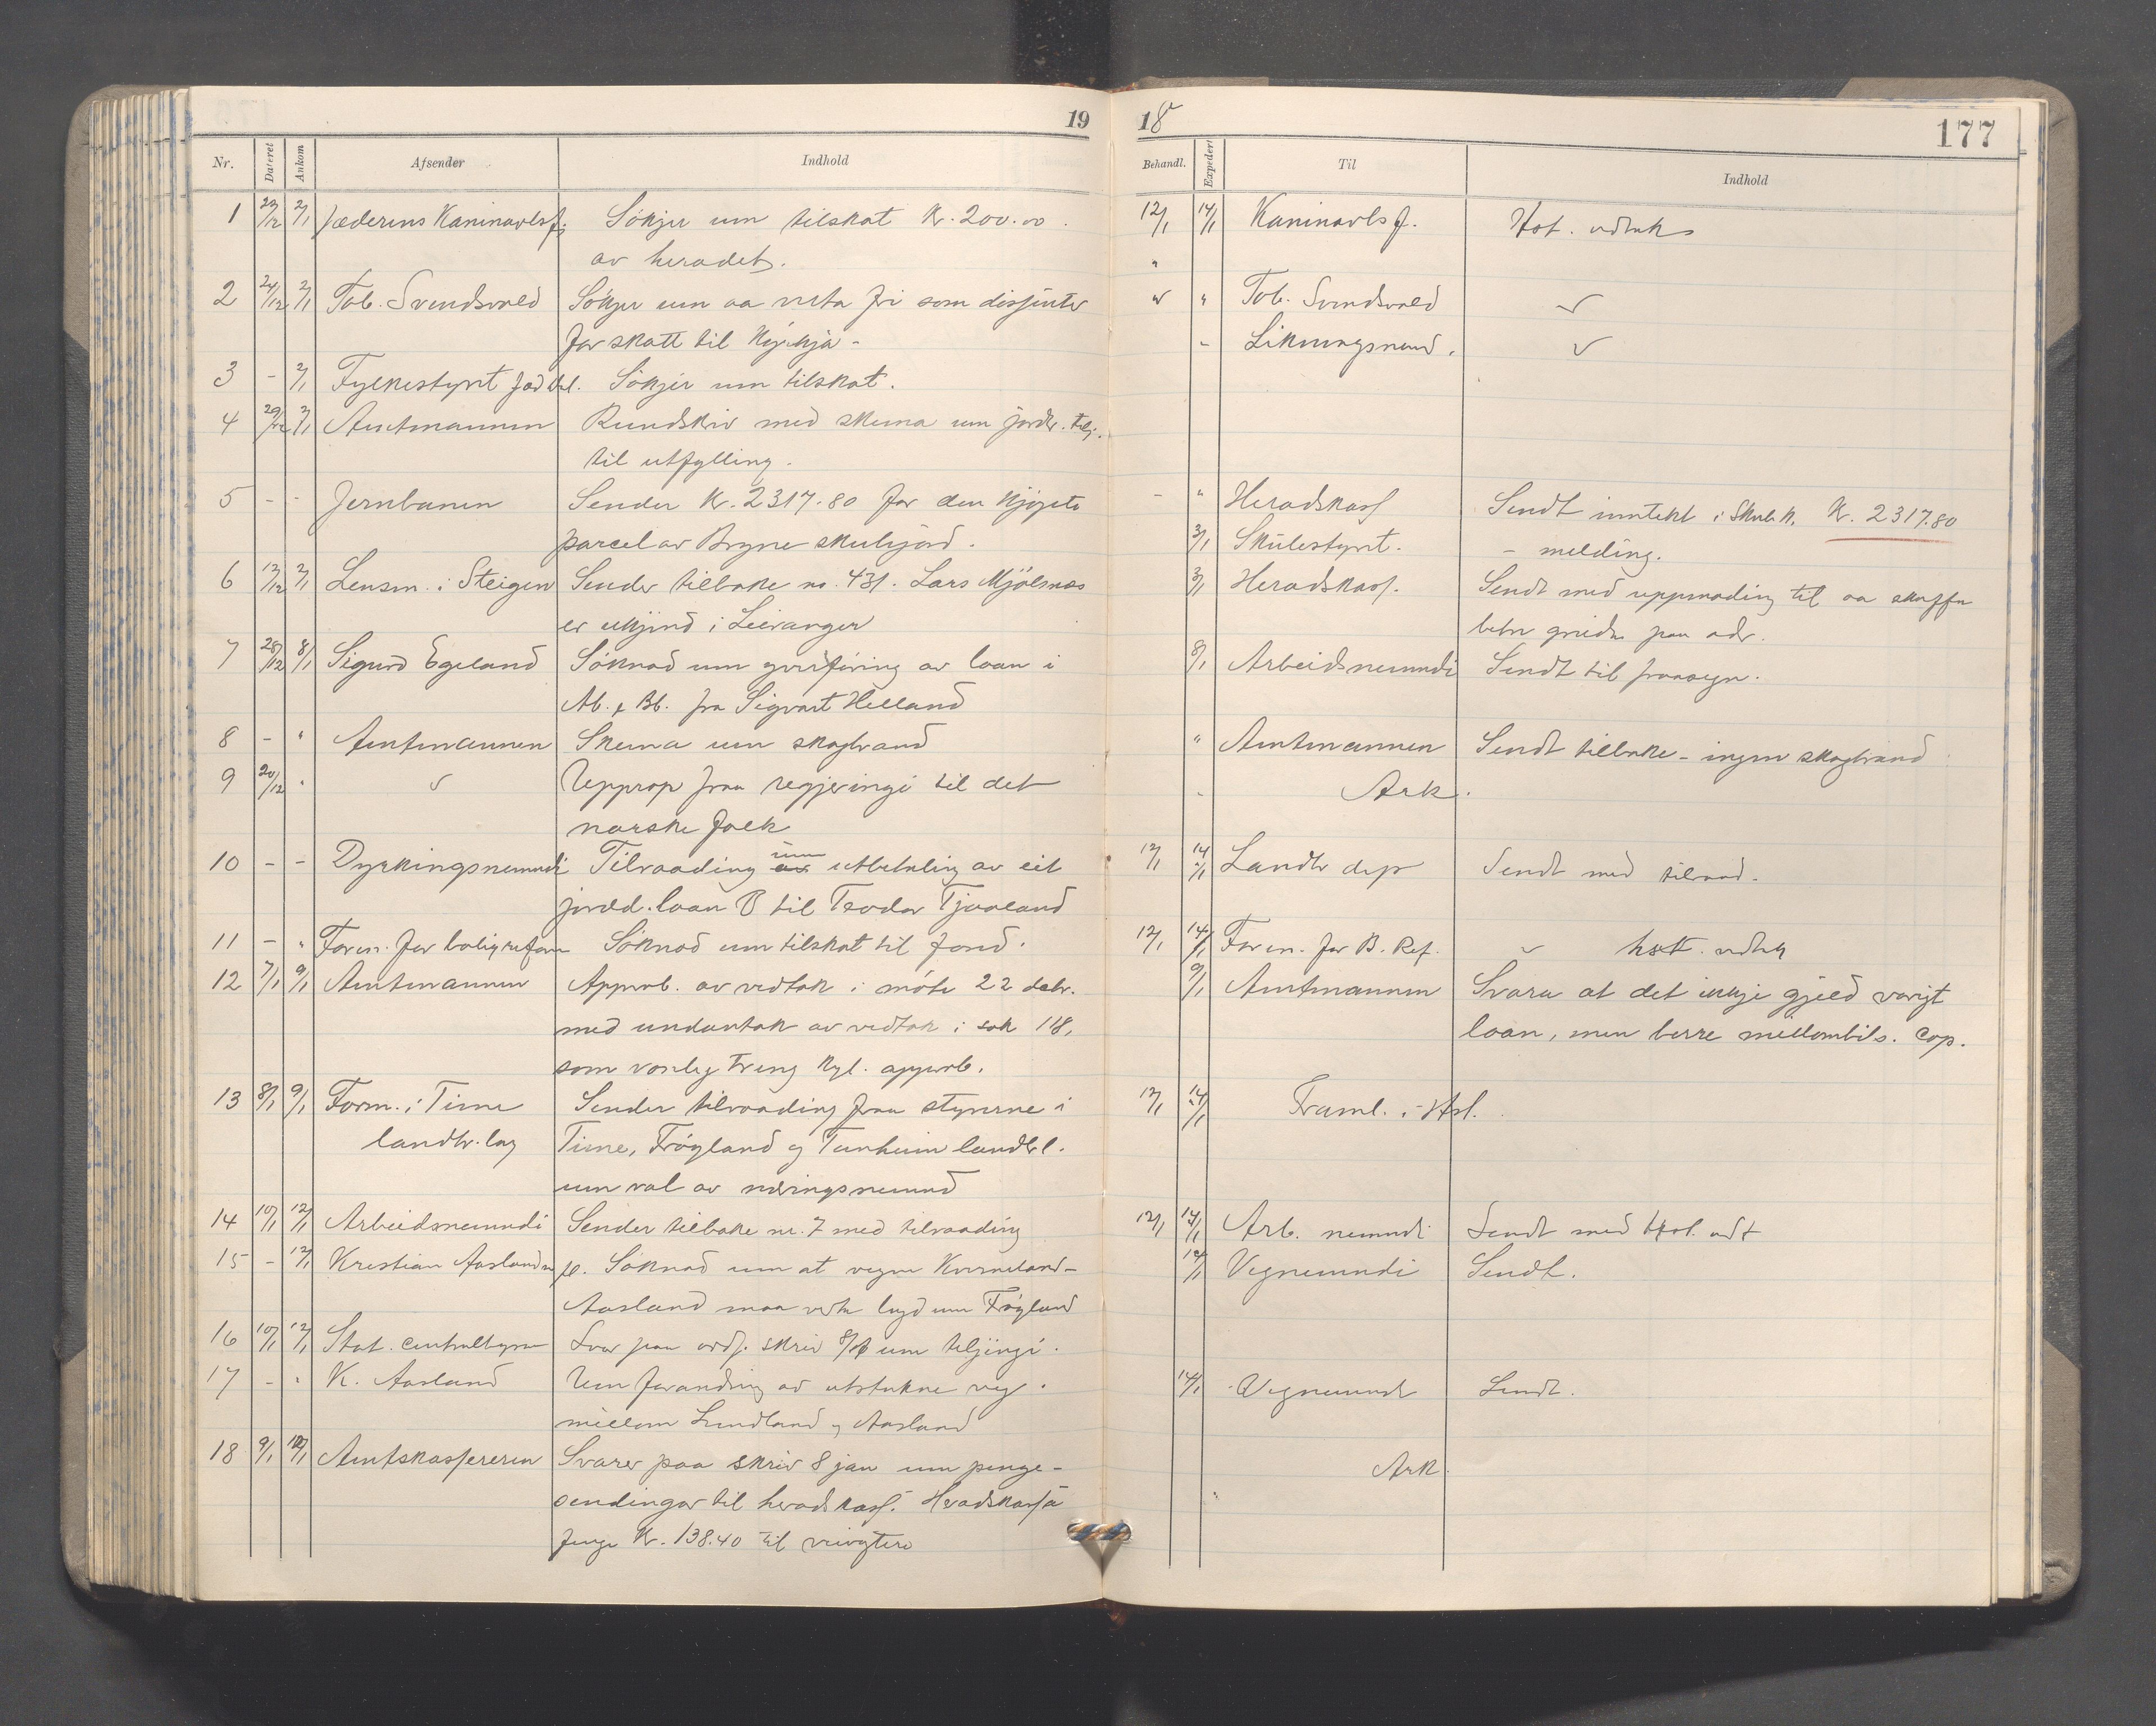 19
Nr. Dateret Ankom Afsender Indhold
1 23/12 2/1 Jæderens Kaninavlsf. Sökjer um tilskot Kr. 200.00.
av heradet.
2 24/12 2/1 Tob. Svendsvold Sökjer um aa verta fri som dissenter
for skatt til Kyrkja -
3 - 2/1 Fylkestyret Sökjer um tilskot.
4 29/12 2/1 Amtmannen Rundskriv med skema um jordbr. telj.
til utfylling.
5 - - Jernbanen Sender Kr. 2317.80 for den Kjöpte
parcel av Bryne skulejord.
6 12/12 2/1 Lensm. i Steigen Sender tilbake no. 431. Lars Mjölsnes
er ukjend i Leivanger
7 28/12 8/1 Sigurd Egeland Söknad um yverföring av laan i
Ab. & Bb. fra Sigvart Helland
8 - " Amtmannen Skema um skogbrand
9 20/12 " Upprop fraa regjeringi til det
norske folk
10 - - Dyrkingsnemndi Tilraading um utbetaling av eit
jordd. laan B til Teodor Tjaaland
11 - " Foren. for boligreform Söknad um tilskot til fond.
12 7/1 9/1 Amtmannen Approb. av vedtak i möte 22 debr.
med undantak av vedtak i sak 118,
som vonleg treng Kgl. approb.
13 8/1 9/1 Form. i Time Sender tilraading fraa styrerne i
landbr. lag Time, Fröyland og Tunheim landbl.
um val av næringsnemnd
14 10/1 12/1 Arbeidsnemndi Sender tilbake nr. 7 med tilraading
15 - 12/1 Kristian Aasland Söknad um at vegen Kverneland-
Aasland maa verta lagd um Fröyland
16 10/1 12/1 Stat. centralbyraa Svar paa ordf. skriv 8/1 um teljingi.
17 - " K. Aasland Um forandring av utstukne veg
millom Lendland og Aasland
18 9/1 12/1 Amtskassereren Svarer paa skriv 8 jan um penge-
sendingar til heradskass. Heradskassa
fenge Kr. 138.40 til
18 177
Behandl. Expedert Til Indhold
12/1 14/1 Kaninavlsf. Hst. vedtak
" " Tob. Svendsvold
- Likningsnemnd.
- " Heradskass Sendt inntekt i Skulek. Kr. 2317.80
3/1 Skulestyret. - melding.
3/1 Heradskass. Sendt med uppmoding til aa skaffa
betre greide paa adr.
8/1 Arbeidsnemndi Sendt til fraasegn.
" Amtmannen Sendt tilbake - ingen skogbrand
Ark.
12/1 14/1 Landbr dep Sendt med tilraad.
12/1 14/1 Foren. for B. Ref. hst. vedtak
9/1 Amtmannen Svara at det ikkje gjeld varigt
laan, men berre mellombils. Cop.
12/1 14/1 Framl. i Hst.
12/1 14/1 Arb. nemndi Sendt med Hst. vedt
12/1 Vegnemndi Sendt.
14/1 Vegnemnd Sendt.
Ark.